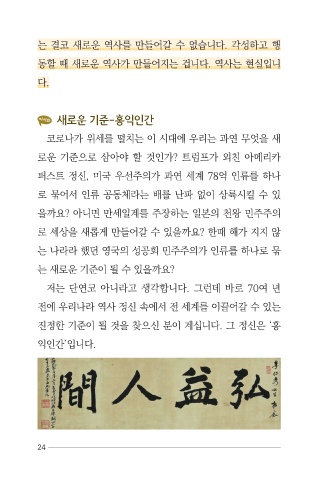 는 결코 새로운 역사를 만들어갈 수 없습니다. 각성하고 행
동할 때 새로운 역사가 만들어지는 겁니다. 역사는 현실입니
다.
새로운 기준-홍익인간
코로나가 위세를 떨치는 이 시대에 우리는 과연 무엇을 새
로운 기준으로 삼아야 할 것인가? 트럼프가 외친 아메리카
퍼스트 정신, 미국 우선주의가 과연 세계 78억 인류를 하나
로 묶어서 인류 공동체라는 배를 난파 없이 상륙시킬 수 있
을까요? 아니면 만세일계를 주장하는 일본의 천왕 민주주의
로 세상을 새롭게 만들어갈 수 있을까요? 한때 해가 지지 않
는 나라라 했던 영국의 성공회 민주주의가 인류를 하나로 묶
는 새로운 기준이 될 수 있을까요?
저는 단연코 아니라고 생각합니다. 그런데 바로 70여 년
전에 우리나라 역사 정신 속에서 전 세계를 이끌어갈 수 있는
진정한 기준이 될 것을 찾으신 분이 계십니다. 그 정신은 '홍
익인간'입니다.
間人益弘
24